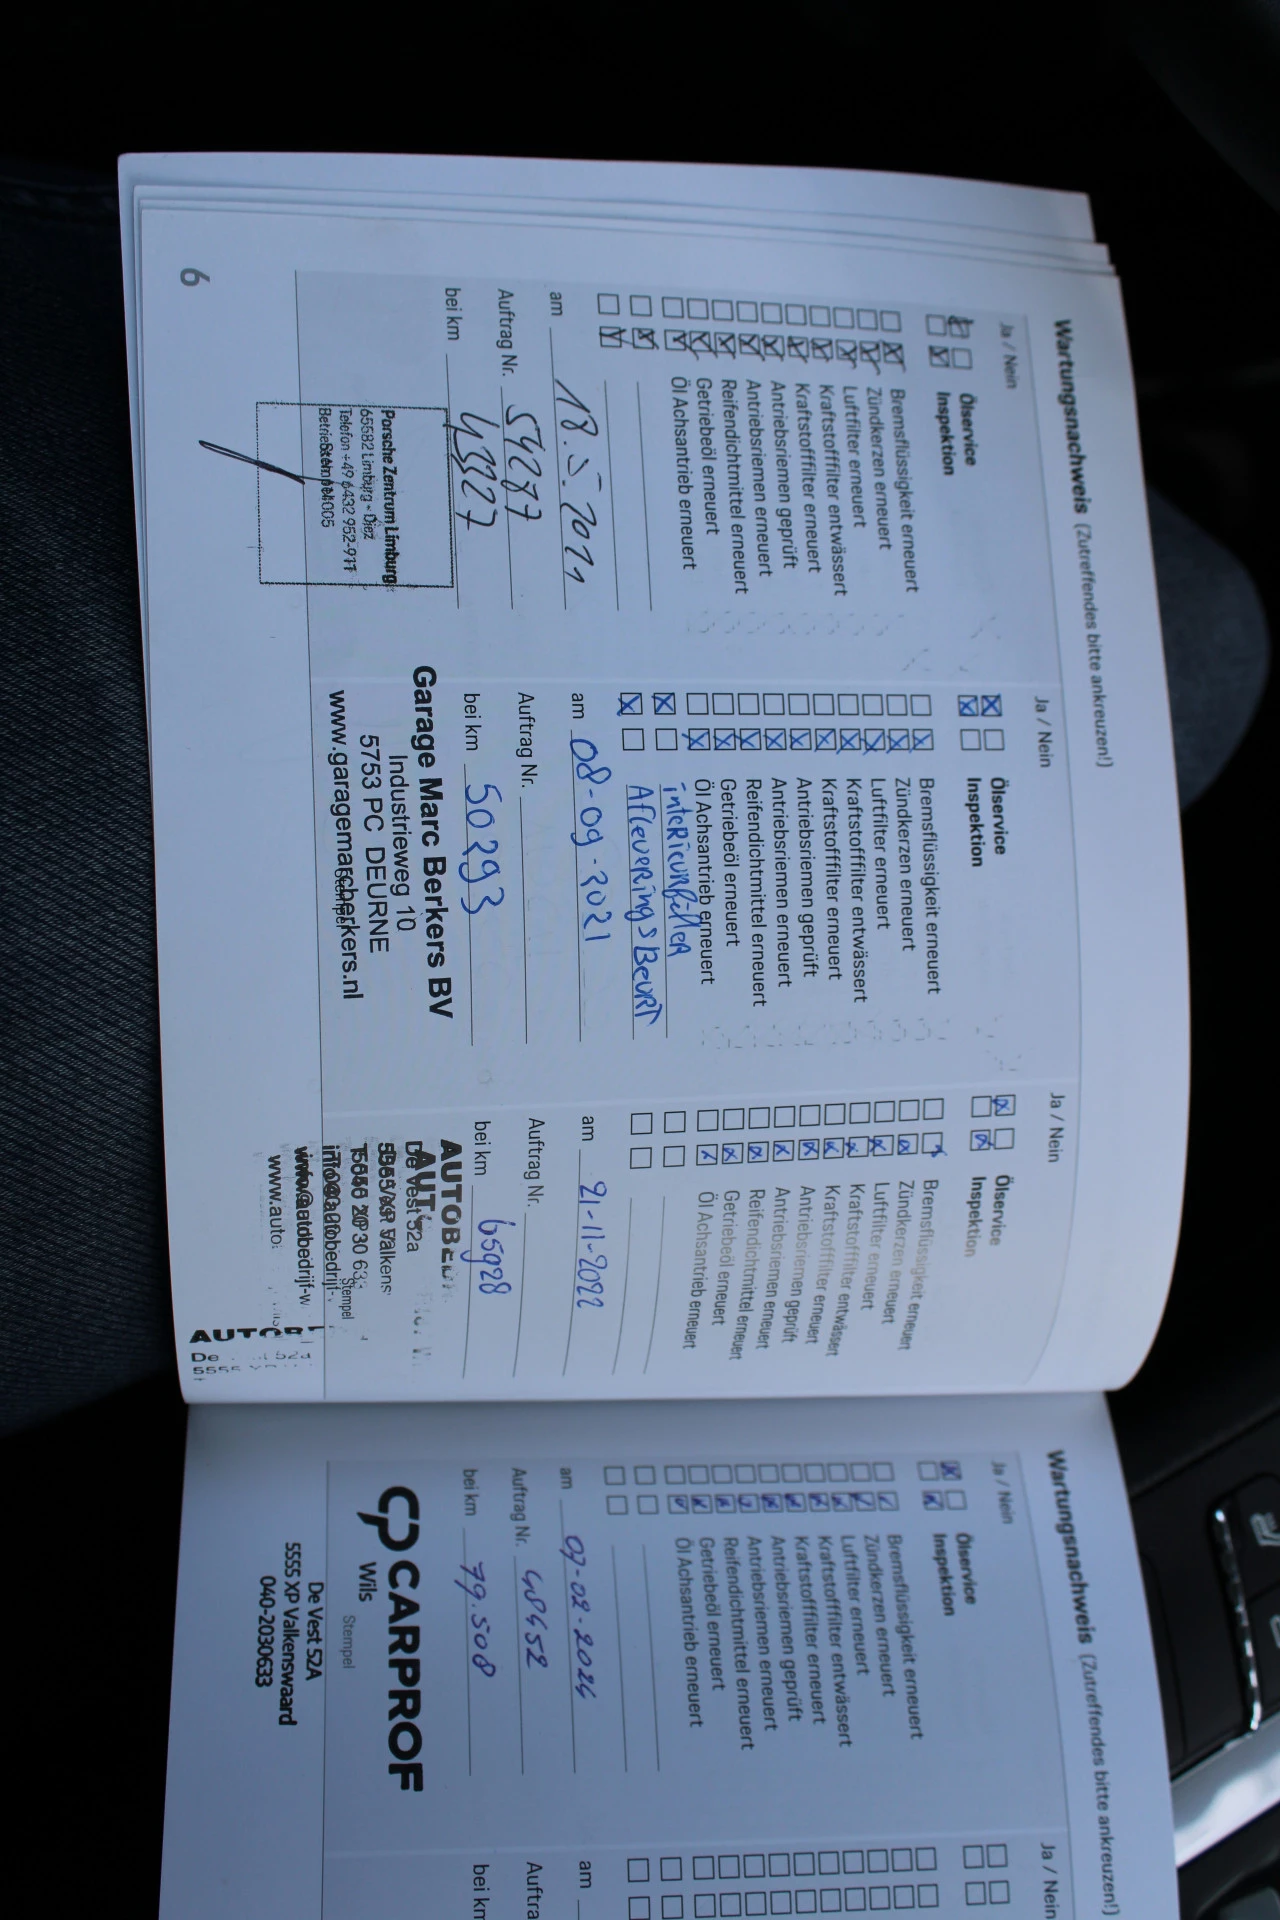 Wartungsnachweis (Zutreffendes bitte ankreuzen!)
Ja / Nein
Ölservice
Inspektion
Bremsflüssigkeit erneuert
Zündkerzen erneuert
Luftfilter erneuert
Kraftstofffilter entwässert
Kraftstofffilter erneuert
Antriebsriemen geprüft
Antriebsriemen erneuert
Reifendichtmittel erneuert
Getriebeöl erneuert
Öl Achsantrieb erneuert
am 18.5.2021
Auftrag Nr. 54277
bei km 43327
Porsche Zentrum Limburg
65582 Limburg - Diez
Telefon +49 6432 952-911
Stempel
Ja / Nein
Ölservice
Inspektion
Bremsflüssigkeit erneuert
Zündkerzen erneuert
Luftfilter erneuert
Kraftstofffilter entwässert
Kraftstofffilter erneuert
Antriebsriemen geprüft
Antriebsriemen erneuert
Reifendichtmittel erneuert
Getriebeöl erneuert
Öl Achsantrieb erneuert
interieurfilter
Afleverings Beurt
am 08-09-2021
Auftrag Nr.
bei km 50293
Garage Marc Berkers BV
Industrieweg 10
5753 PC DEURNE
www.garagemarcberkers.nl
Stempel
Ja / Nein
Ölservice
Inspektion
Bremsflüssigkeit erneuert
Zündkerzen erneuert
Luftfilter erneuert
Kraftstofffilter entwässert
Kraftstofffilter erneuert
Antriebsriemen geprüft
Antriebsriemen erneuert
Reifendichtmittel erneuert
Getriebeöl erneuert
Öl Achsantrieb erneuert
am 21-11-2022
Auftrag Nr.
bei km 65928
De Vest 52a
Stempel
6
Wartungsnachweis (Zutreffendes bitte ankreuzen!)
Ja / Nein
Ölservice
Inspektion
Bremsflüssigkeit erneuert
Zündkerzen erneuert
Luftfilter erneuert
Kraftstofffilter entwässert
Kraftstofffilter erneuert
Antriebsriemen geprüft
Antriebsriemen erneuert
Reifendichtmittel erneuert
Getriebeöl erneuert
Öl Achsantrieb erneuert
am 07-02-2024
Auftrag Nr. 48452
bei km 79.508
CARPROF
Wils
Stempel
De Vest 52A
5555 XP Valkenswaard
040-2030633
Ja / Nein
am
Auftra
bei km